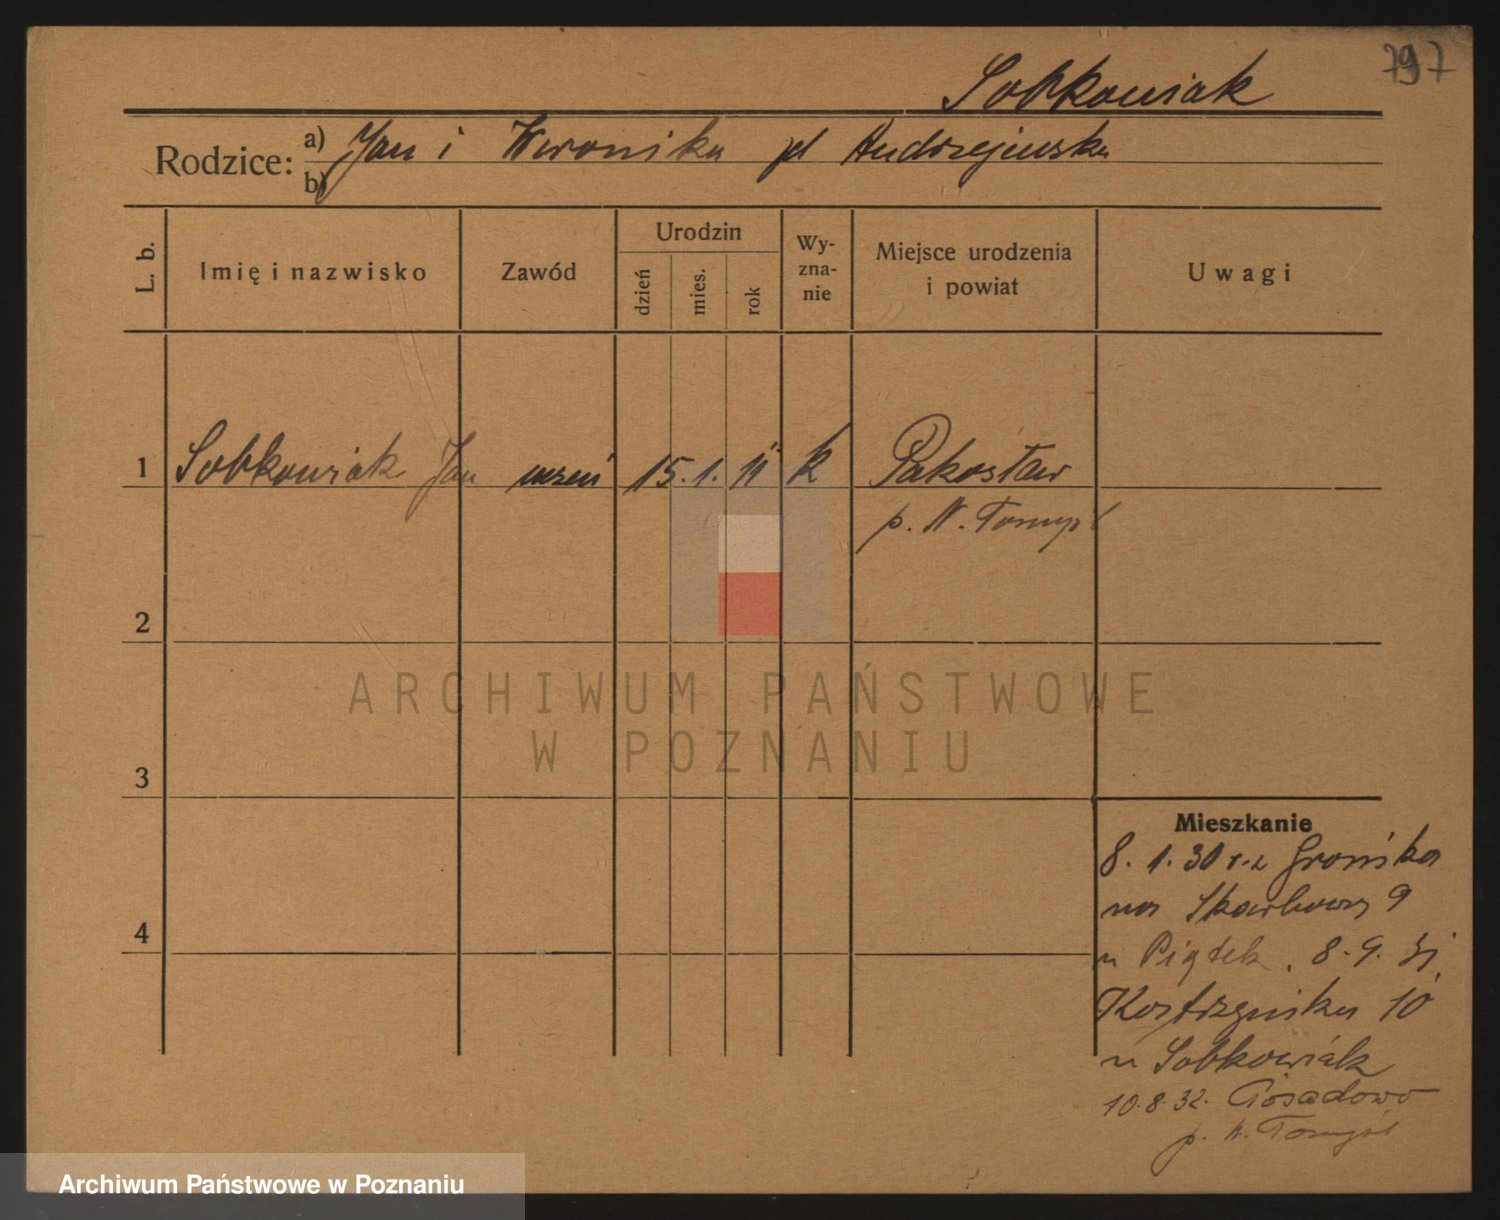 797
Sobkowiak
Rodzice: a) Jan i Weronika pd Andrzejewska
b)
L. b. Imię i nazwisko Zawód Urodzin dzień mies. rok Wy-zna-nie Miejsce urodzenia i powiat Uwagi
1 Sobkowiak Jan uczeń 15. 1. 11 k Pakosław
p. N. Tomyśl
2
3
4
Mieszkanie
8. 1. 30 r. z Grońska
na Skarbowa 9
u Piątek . 8. 9. 31.
Kostrzyńska 10
u Sobkowiak
10. 8. 32. Posadowo
p. N. Tomyśl
ARCHIWUM PAŃSTWOWE
W POZNANIU
Archiwum Państwowe w Poznaniu